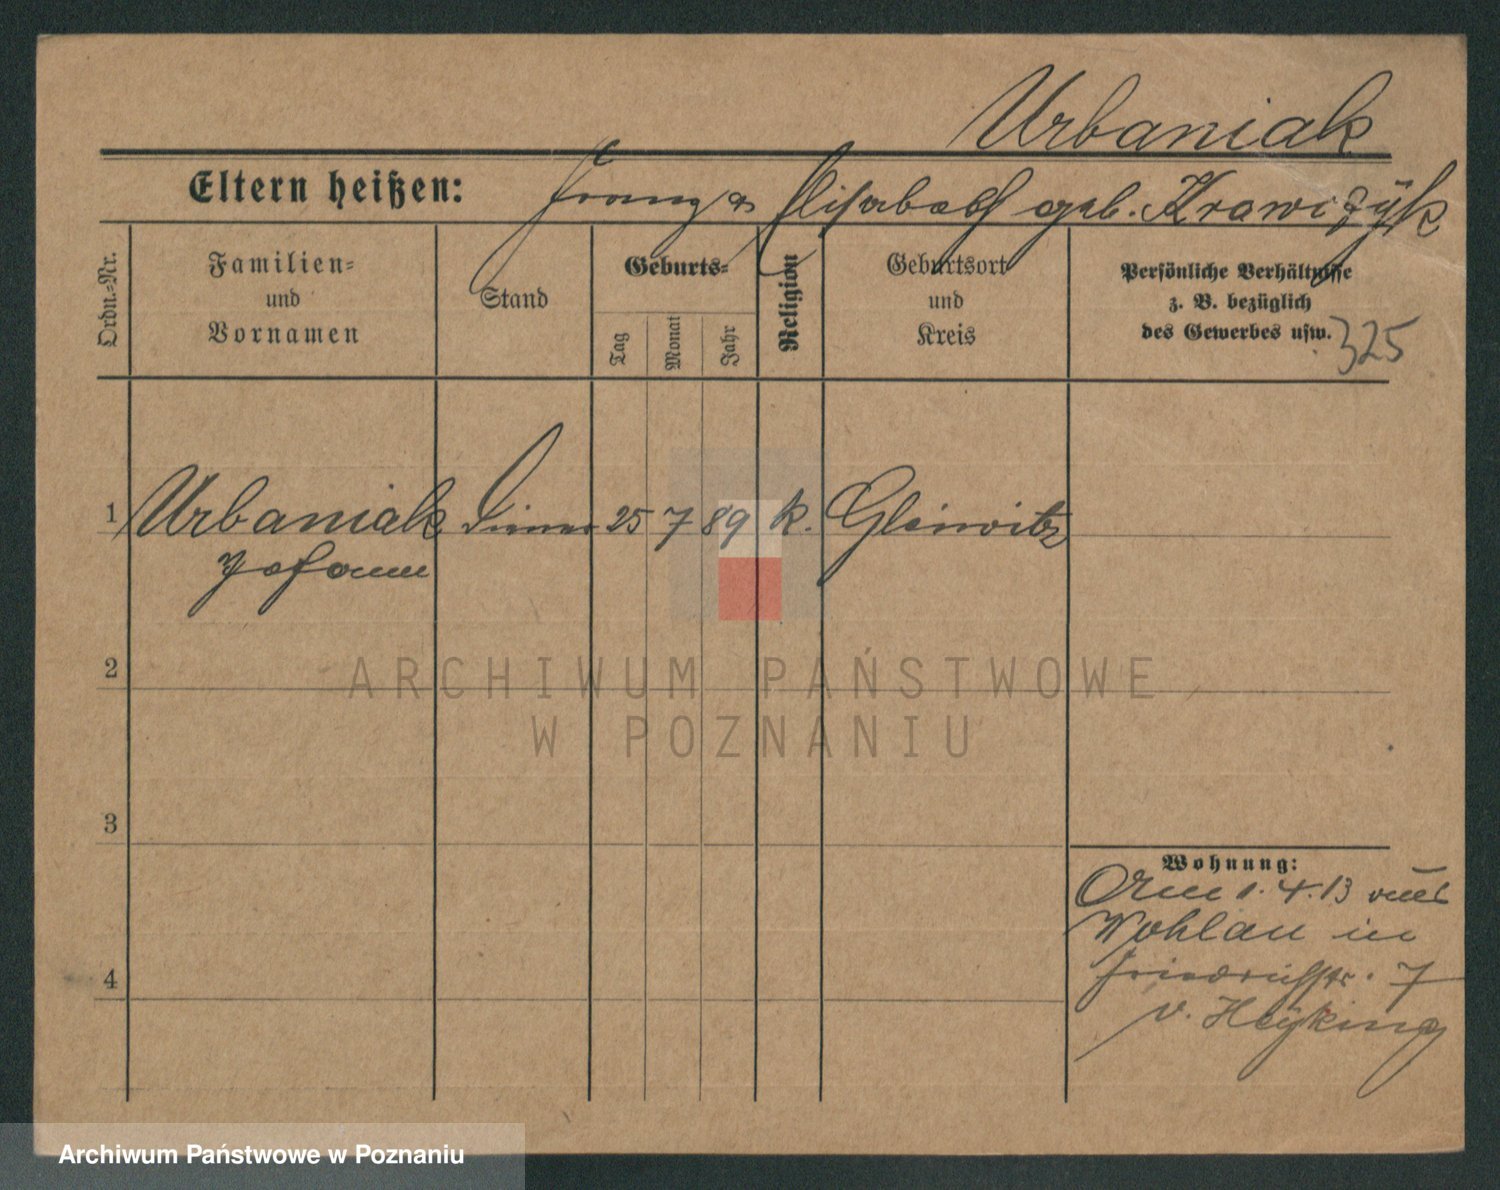 Urbaniak
Eltern heißen: Franz & Elisabeth geb. Krawczÿk
Ordn.-Nr.
Familien-
und
Vornamen
Stand
Geburts-
Tag
Monat
Jahr
Religion
Geburtsort
und
Kreis
Persönliche Verhältnisse
z. B. bezüglich
des Gewerbes usw.
325
1 Urbaniak Diener 25 7 89 k. Gleiwitz
Johann
2
3
4
Wohnung:
Am 1.4.13 aus
Wohlau in
Friedrichstr. 7
v. Heÿking
ARCHIWUM PAŃSTWOWE
W POZNANIU
Archiwum Państwowe w Poznaniu